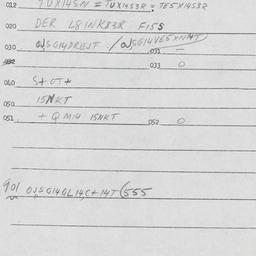 012 TUX14SN = TUX14S3R = TE5X14S3R
020 DER L8INK83R FISS
030 OJSG14DREJT / OJSG14VESXNMT
031 —
032 033 O
040 S+OT+
050 15NKT
051 + QM14 15NKT 052 O
901 OJSG14GL14,C+14T (555